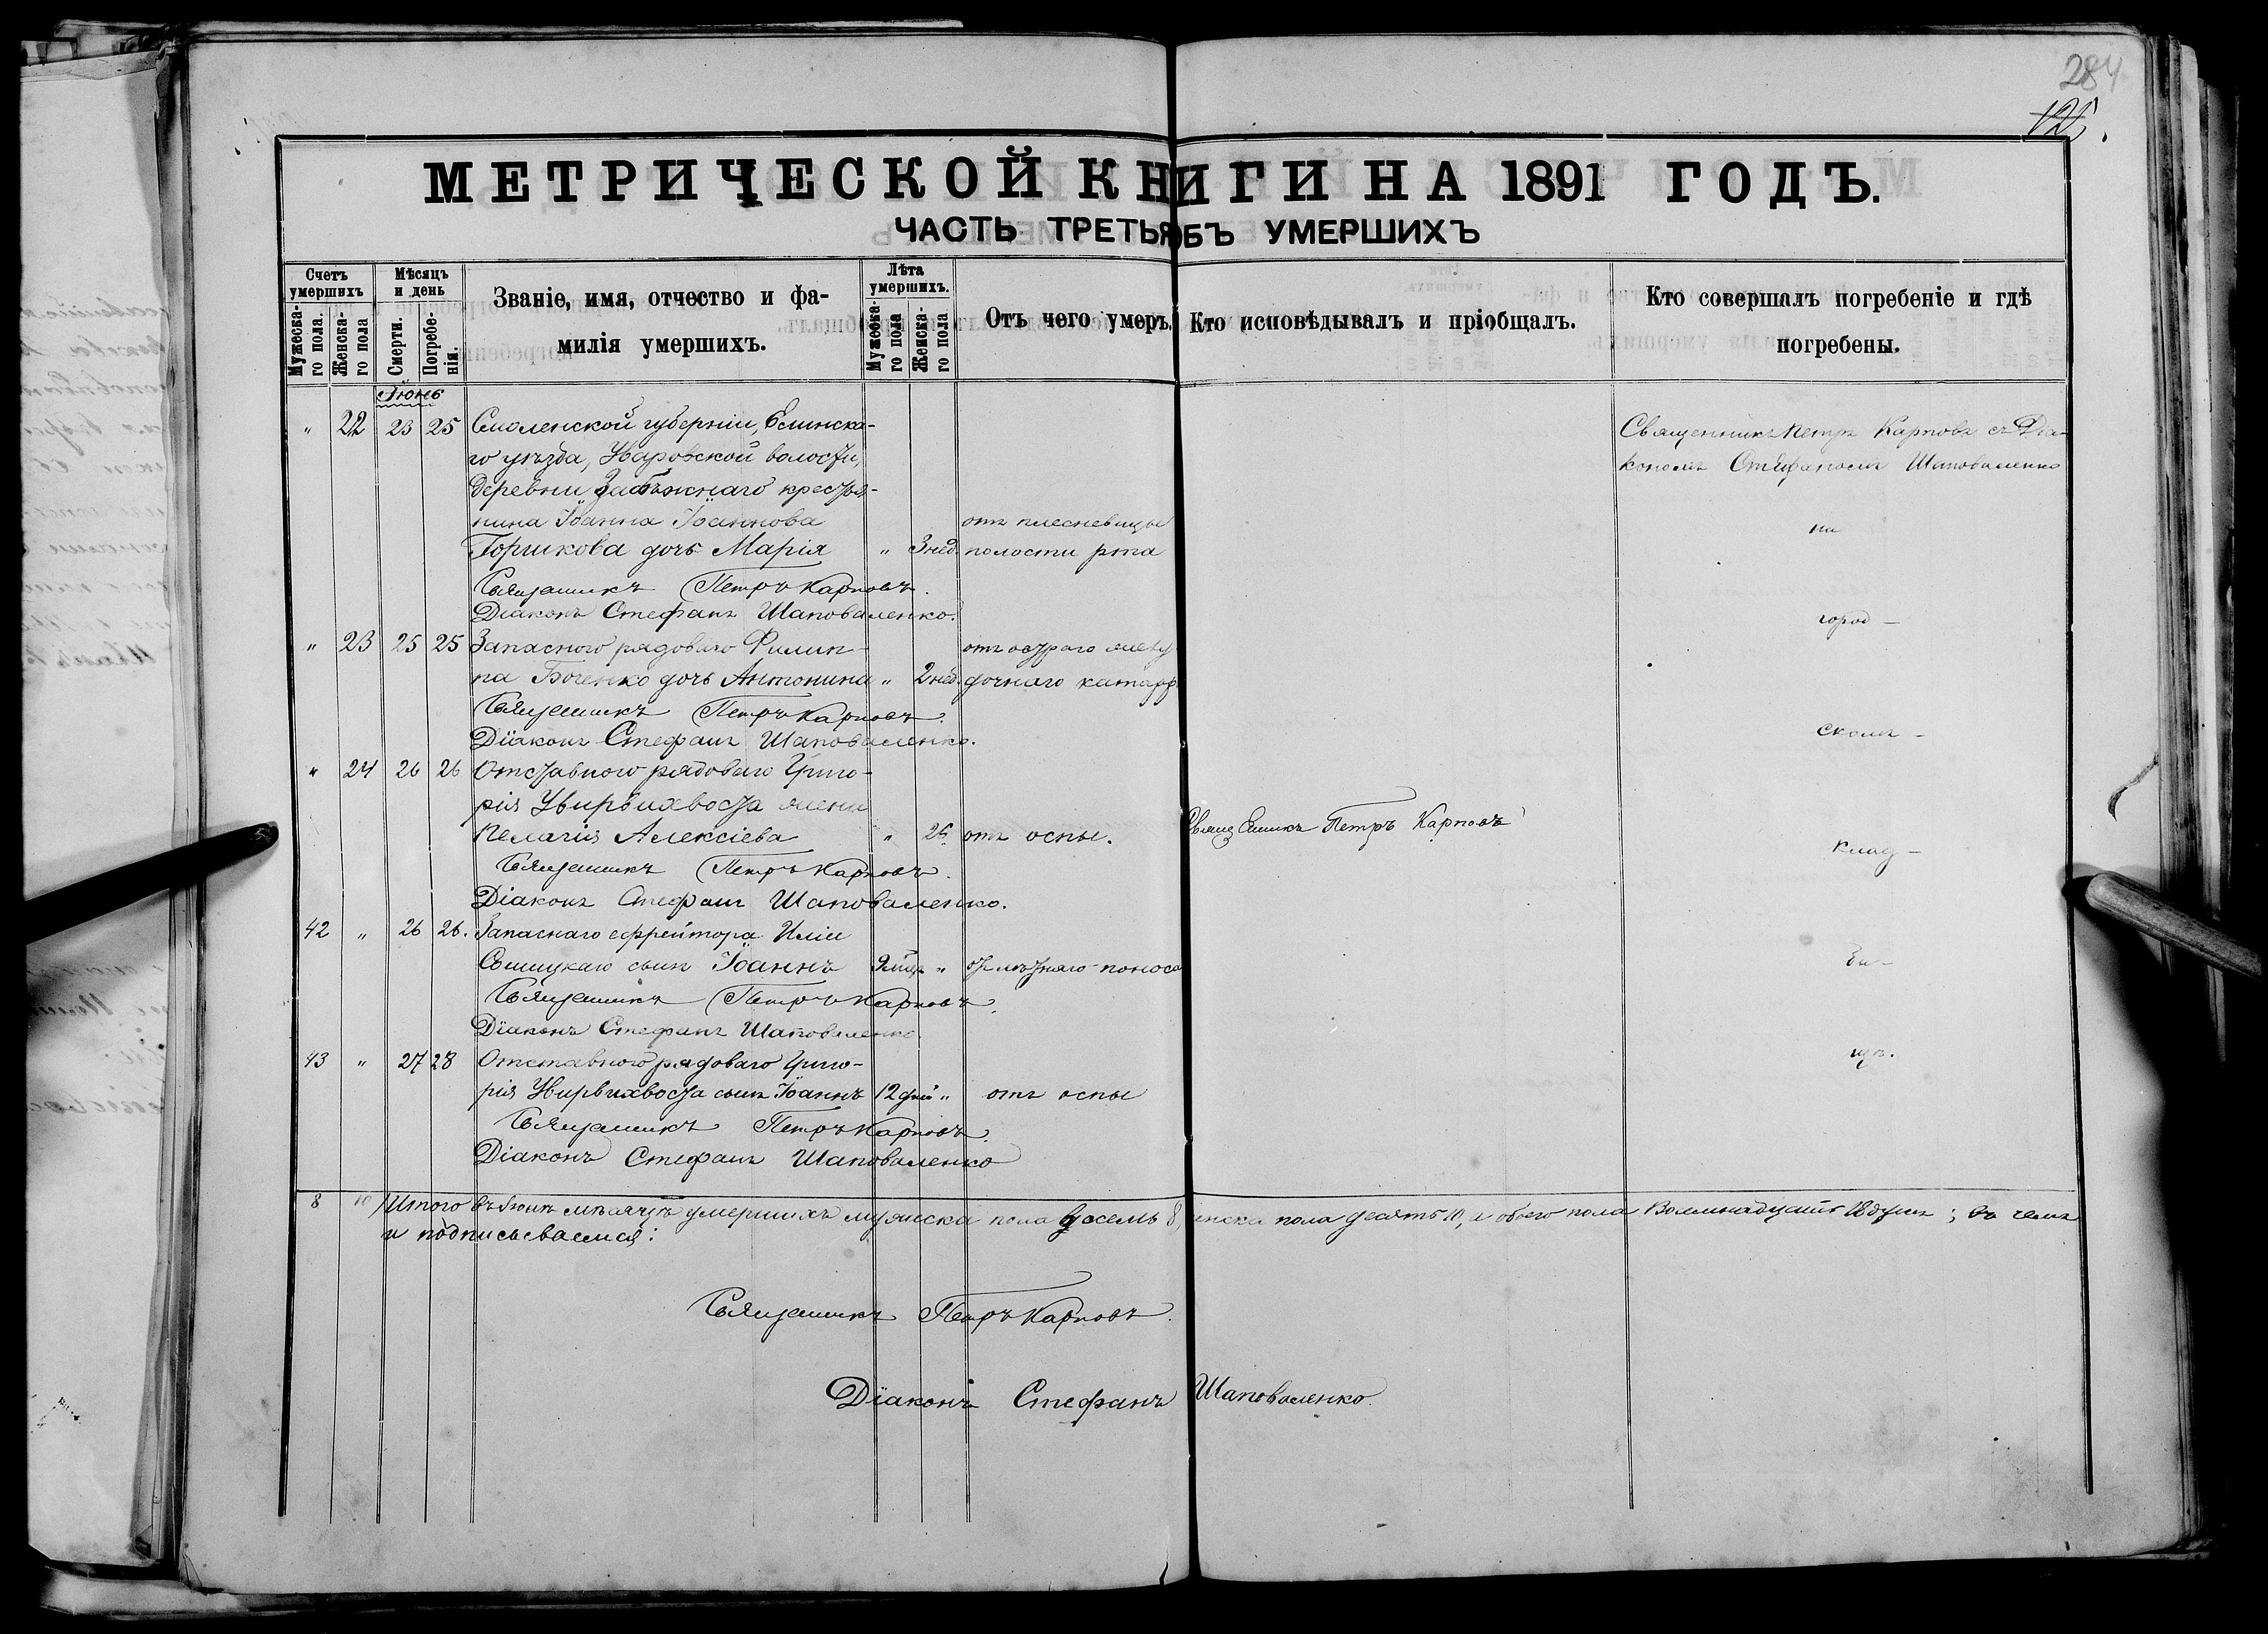 284
125.
МЕТРИЧЕСКОЙ КНИГИ НА 1891 ГОДЪ.
ЧАСТЬ ТРЕТЬЯ ОБЪ УМЕРШИХЪ
Счетъ умершихъ
Мужеска-го пола.
Женска-го пола
Мѣсяцъ и день
Смерти.
Погребе-нія.
Званіе, имя, отчество и фа-
милія умершихъ.
Лѣта умершихъ.
Мужеска-го пола
Женска-го пола
Отъ чего умеръ.
Кто исповѣдывалъ и пріобщалъ.
Кто совершалъ погребеніе и гдѣ
погребены.
Іюнь
" 22 23 25 Смоленской губерніи, Ельнска- Священникъ Петръ Карповъ съ Діа-
го уѣзда, Уваровской волости, кономъ Стефаномъ Шаповаленко
деревни Забѣжнаго крестья-
нина Іоанна Іоаннова отъ плесневицы на
Горшкова дочь Марія " 3 нед. полости рта
Священникъ Петръ Карповъ.
Діаконъ Стефанъ Шаповаленко. город-
" 23 25 25 Запасного рядового Филип- отъ остраго желу
па Боченко дочь Антонина " 2 нед. дочнаго катарр
Священникъ Петръ Карповъ.
Діаконъ Стефанъ Шаповаленко. скомъ-
" 24 26 26 Отставного рядоваго Григо-
рія Увирвихвоста жена
Пелагія Алексіева " 26 отъ оспы. Священникъ Петръ Карповъ
Священникъ Петръ Карповъ. клад-
Діаконъ Стефанъ Шаповаленко.
42 " 26 26. Запаснаго ефрейтора Иліи
сынъ Іоаннъ 9 мѣс. " отъ лѣтняго поноса би-
Священникъ Петръ Карповъ.
Діаконъ Стефанъ Шаповаленко.
43 " 27 28 Отставного рядоваго Григо- щѣ.
рія Увирвихвоста сынъ Іоаннъ 12 дней " отъ оспы
Священникъ Петръ Карповъ.
Діаконъ Стефанъ Шаповаленко
8 10 Итого въ Іюнѣ мѣсяцѣ умершихъ мужеска пола восемь 8, женска пола десять 10, а обоего пола восемнадцать 18 душъ; въ чемъ
и подписываемся:
Священникъ Петръ Карповъ.
Діаконъ Стефанъ Шаповаленко.